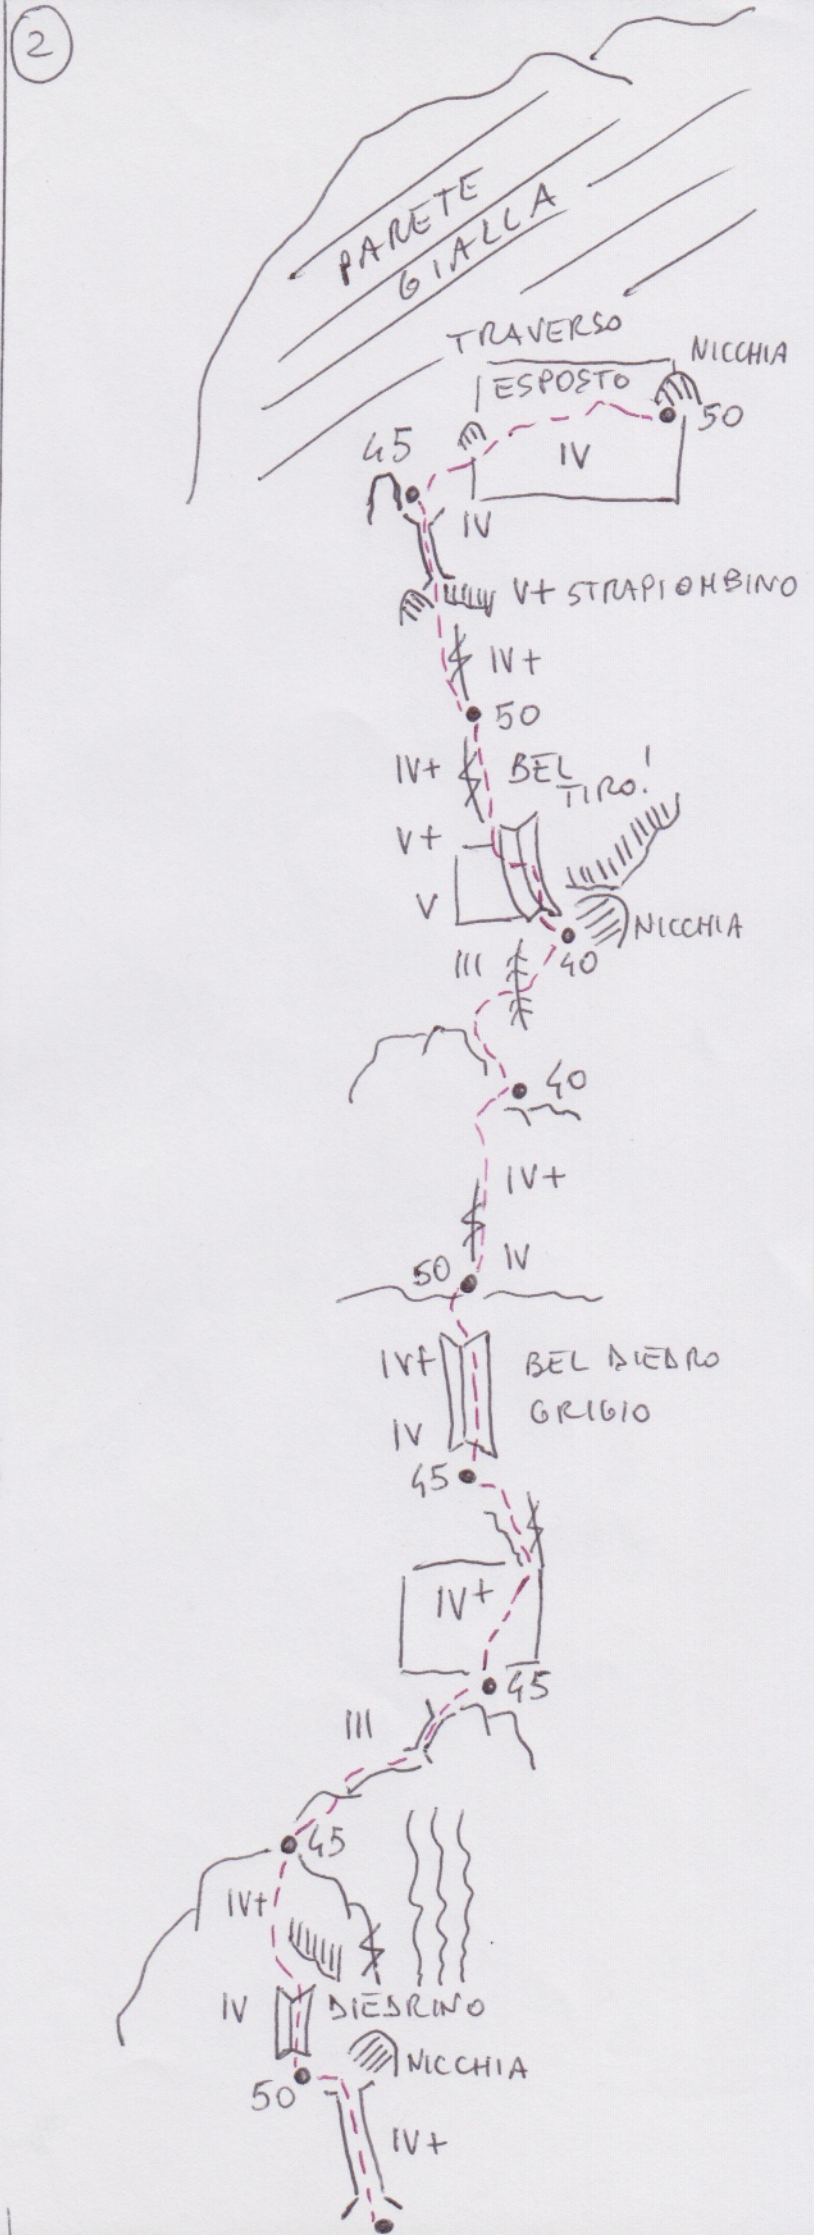 2
PARETE
GIALLA
TRAVERSO
ESPOSTO
NICCHIA
50
IV
45
IV
V+ STRAPIOMBINO
IV+
50
IV+
BEL
TIRO!
V+
V
NICCHIA
III
40
40
IV+
IV
50
IV+
BEL DIEDRO
GRIGIO
IV
45
IV+
45
III
45
IV+
IV
DIEDRINO
NICCHIA
50
IV+